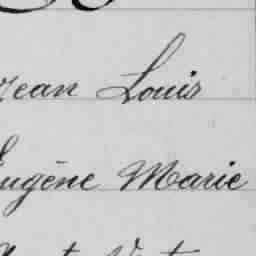 Jean Louis
Eugène Marie